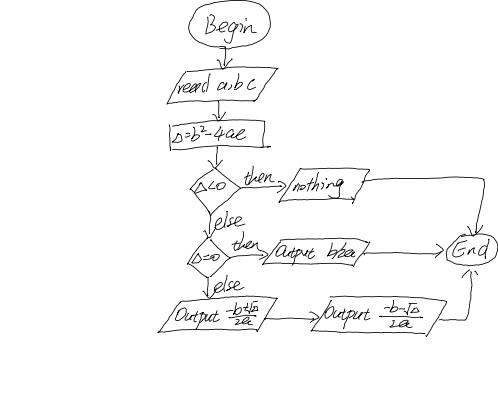 Begin
read a,b c
Δ=b²-4ac
Δ<0
then
nothing
else
Δ=0
then
Output b/2a
End
else
Output (-b+√Δ)/2a
Output (-b-√Δ)/2a